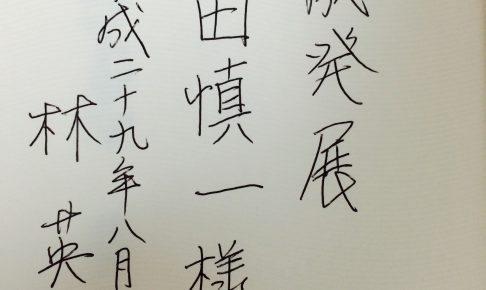 発展
田慎一様
成二十九年八月
林英